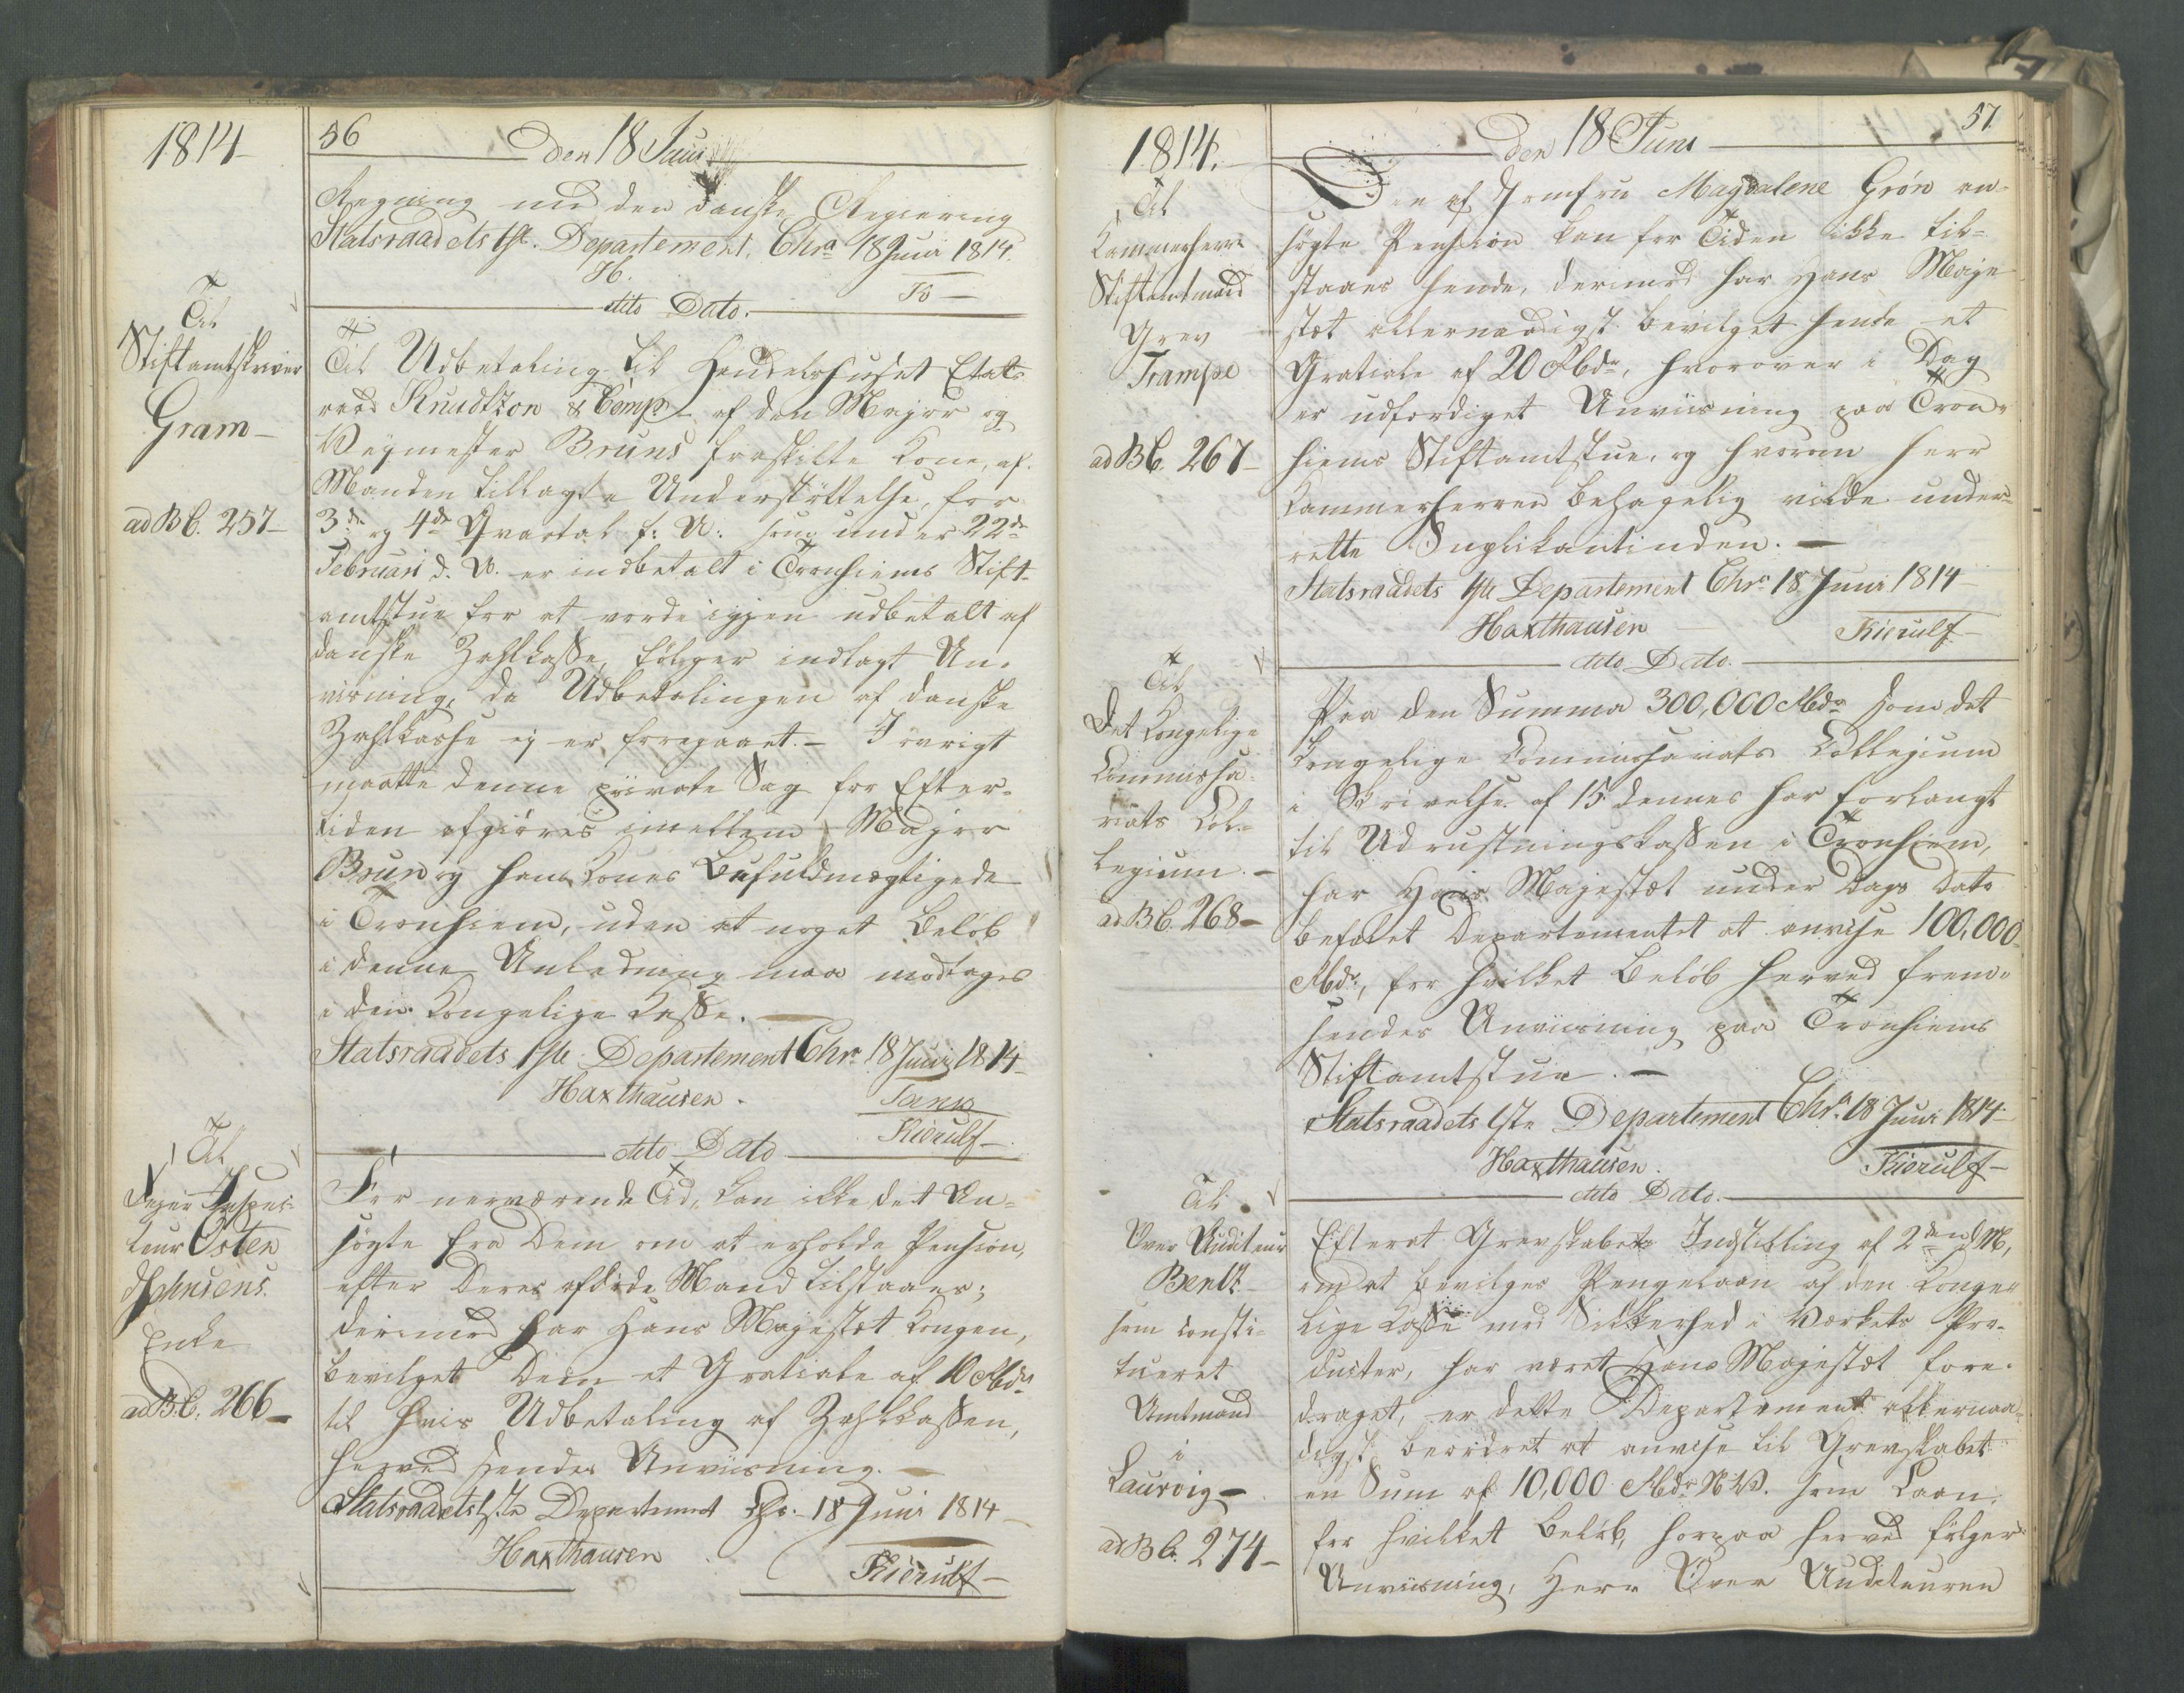 1814
56
den 18 Juni
Regning med den danske Regiering
Statsraadets 1ste Departement. Chra 18 Juni 1814.
H.
To —
dito Dato.
Til
Stiftamtskriver
Gram —
ad B b. 257 —
Til Udbetaling til Handelshuset Etats-
raad Knudtzon & Comp af den Major og
Veymester Bruns fraskilte Kone, af
Manden tillagte Understöttelse, for
3de og 4de Qvartal f: A: som under 22de
Februari d. A. er indbetalt i Tronhiems Stift-
amtstue for at vorde igjen udbetalt af
danske Zahlkasse, fölger indlagt An-
viisning, da Udbetalingen af danske
Zahlkasse ej er foregaaet. — Iövrigt
maatte denne private Sag for Efter-
tiden afgiöres imellem Major
Brun og hans Kones Befuldmægtigede
i Tronhiem, uden at noget Belöb
i denne Anledning maa modtages
i den Kongelige Kasse. —
Statsraadets 1ste Departement Chra 18 Juni 1814 —
Haxthausen.
Tank
Kierulf —
dito Dato
Til
Veger Inspec-
teur Osten
Johnsens
Enke
ad B. b. 266 —
For nærværende Tid, kan ikke det An-
søgte fra Dem om at erholde Pension,
efter Deres afdöde Mand tilstaaes;
derimod har Hans Majestæt Kongen,
bevilget Dem et Gratiale af 10 Rbdr
til hvis Udbetaling af Zahlkassen,
herved sendes Anviisning. —
Statsraadets 1ste Departement Chr. 18 Juni 1814 —
Haxthausen
Kierulf —
1814.
57.
den 18 Juni
Til
Kammerherre
Stiftamtmand
Grev
Trampe
ad B b. 267 —
Den af Jomfru Magdalene Grön an-
søgte Pension kan for Tiden ikke til-
staaes hende, derimod har Hans Maje
stæt allernaadigst bevilget hende et
Gratiale af 20 Rbdr, hvorover i Dag
er udfærdiget Anviisning paa Tron-
hiems Stiftamtstue, og hvorom Herr
Kammerherren behagelig vilde under-
rette Suplikantinden. —
Statsraadets 1ste Departement Chra 18 Juni 1814
Haxthausen
Kierulf —
dito Dato.
Til
Det Kongelige
Commissa-
riats Col-
legium. —
ad B b. 268 —
Paa den Summa 300,000 Rbdr som det
Kongelige Commissariats Collegium
i Skrivelse af 15 dennes har forlangt
til Udrustningskassen i Tronhiem,
har Hans Majestæt under Dags Dato
befalet Departementet at anvise 100,000
Rbdr, for hvilket Belöb herved frem-
sendes Anviisning paa Tronhiems
Stiftamtstue. —
Statsraadets 1ste Departement Chra. 18 Juni 1814
Haxthausen.
Kierulf —
dito Dato.
Til
Over Auditeur
Bentz
som consti-
tueret
Amtmand
i
Laurvig —
ad B b. 274 —
Efterat Grevskabets Indstilling af 2den d. M,
om at bevilges Pengelaan af den Konge-
lige Kasse mod Sikkerhed i Værkets Pro-
ducter, har været Hans Majestæt fore-
draget, er dette Departement allernaa-
digst beordret at anvise til Grevskabet
en Sum af 10,000 Rbdr N. V. som Laan,
for hvilket Belöb, hvorpaa herved fölger
Anviisning, Herr Over Auditeuren